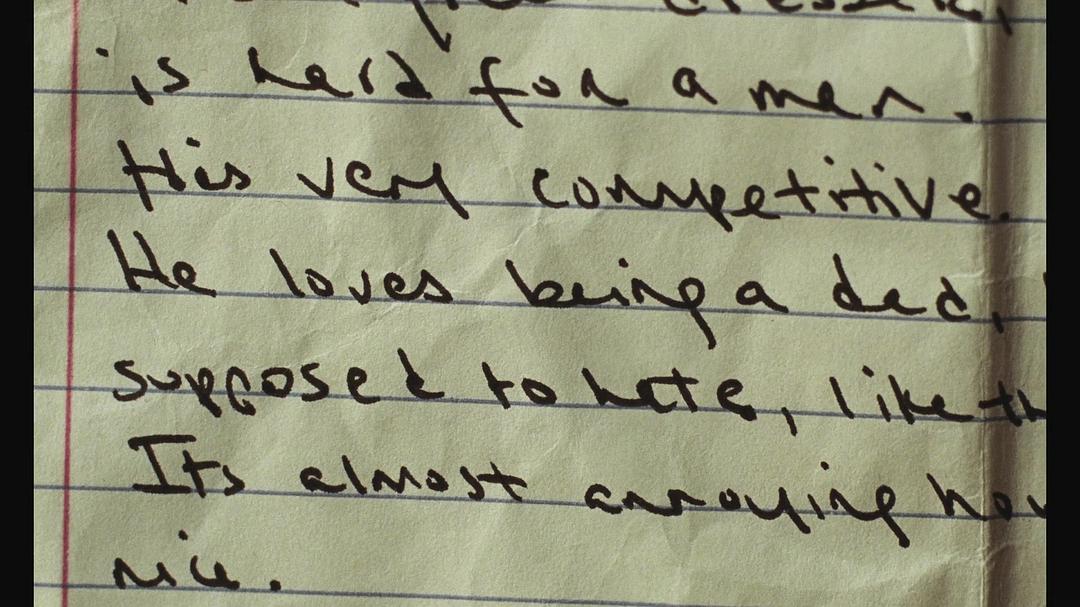 is hard for a man.
His very competitive.
He loves being a dad,
supposed to hate, like
Its almost annoying how
nice.